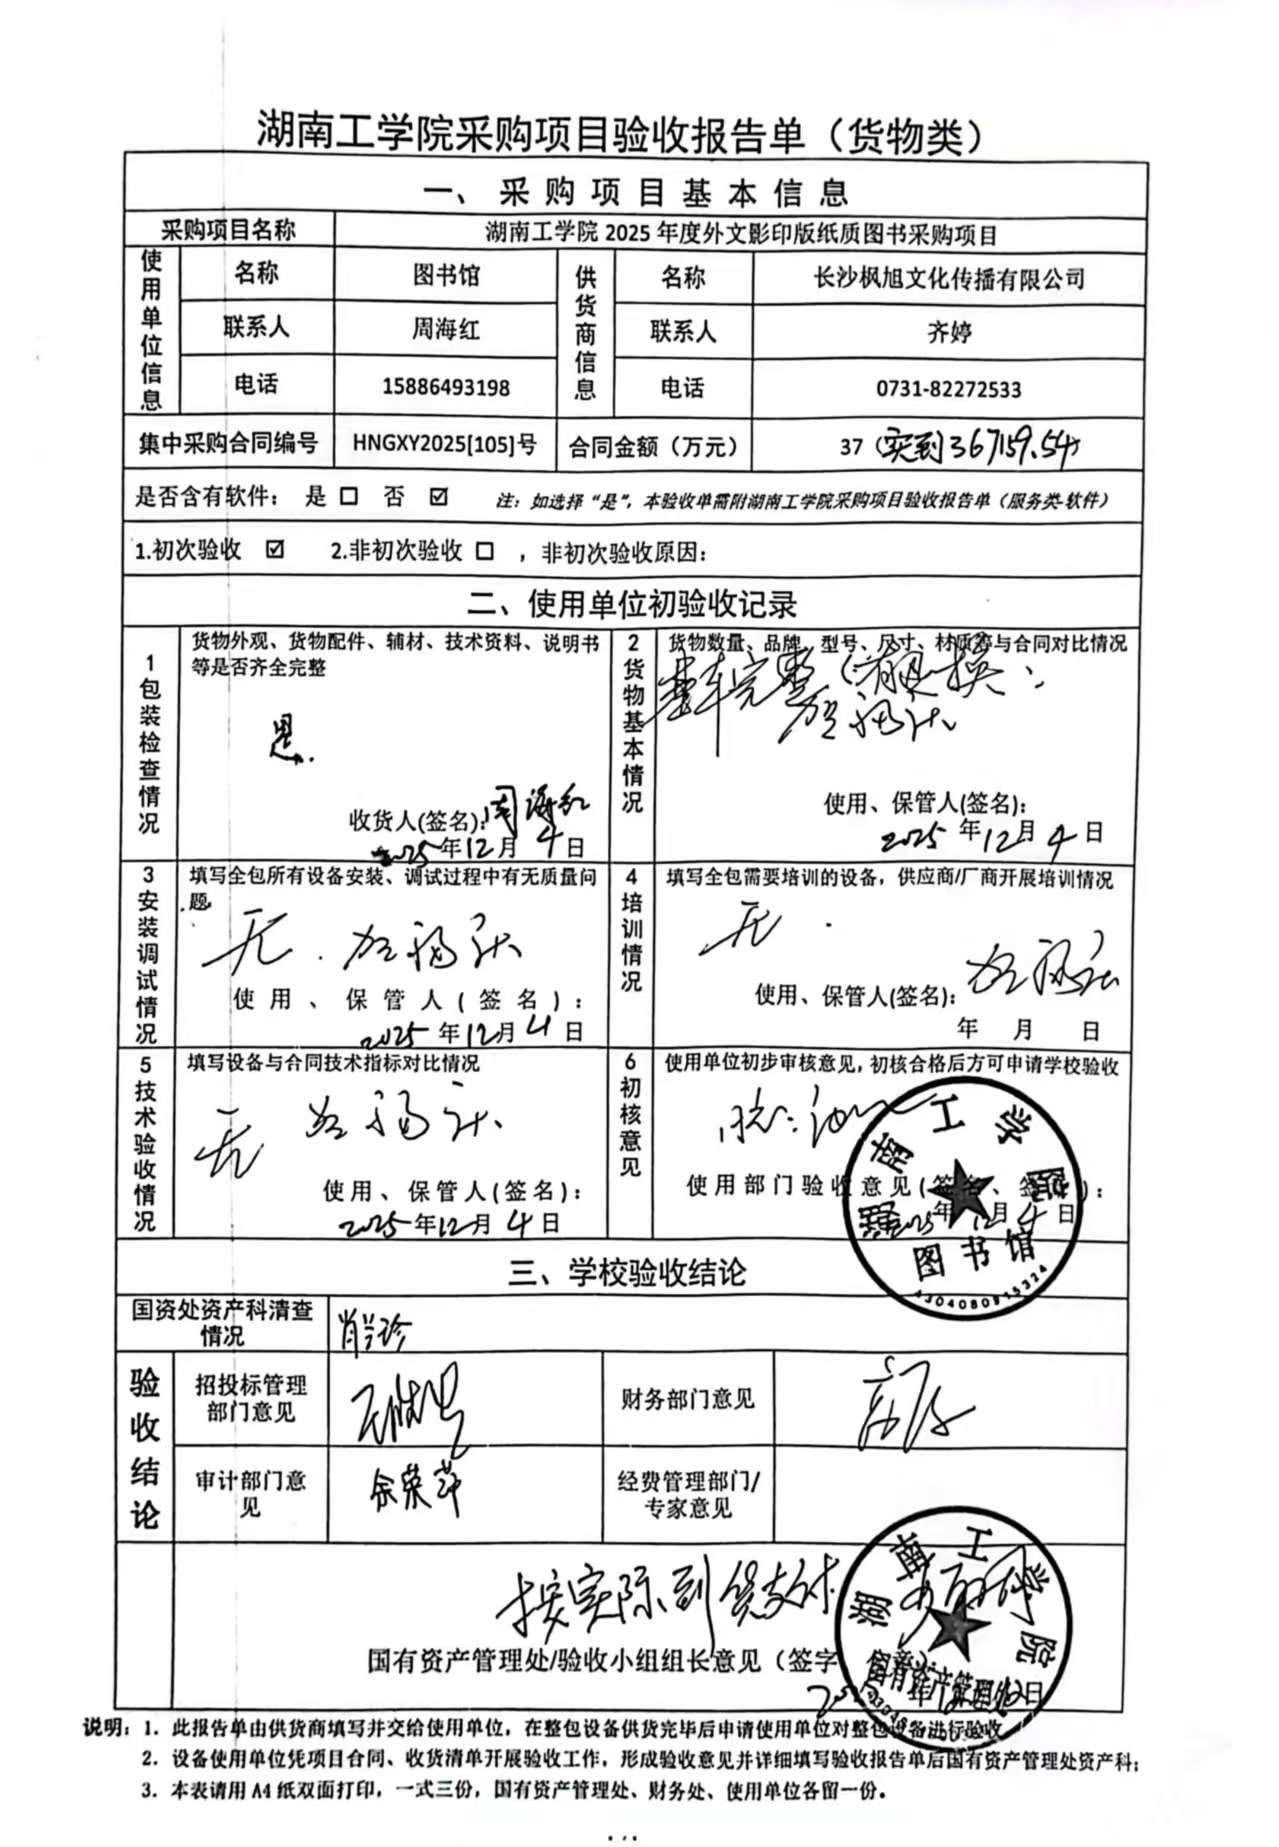 湖南工学院采购项目验收报告单（货物类）
一、采购项目基本信息
采购项目名称 湖南工学院 2025 年度外文影印版纸质图书采购项目
使用单位信息 名称 图书馆 供货商信息 名称 长沙枫旭文化传播有限公司
联系人 周海红 联系人 齐婷
电话 15886493198 电话 0731-82272533
集中采购合同编号 HNGXY2025[105]号 合同金额（万元） 37（实到367159.54）
是否含有软件： 是 □ 否 ☑ 注：如选择“是”，本验收单需附湖南工学院采购项目验收报告单（服务类-软件）
1.初次验收 ☑ 2.非初次验收 □ ，非初次验收原因：
二、使用单位初验收记录
1包装检查情况
货物外观、货物配件、辅材、技术资料、说明书
等是否齐全完整
是.
收货人(签名)：周海红
2025年12月4日
2货物基本情况
货物数量、品牌、型号、尺寸、材质等与合同对比情况
使用、保管人(签名)：
2025年12月4日
3安装调试情况
填写全包所有设备安装、调试过程中有无质量问
题
无.
使用、保管人(签名)：
2025年12月4日
4培训情况
填写全包需要培训的设备，供应商/厂商开展培训情况
无.
使用、保管人(签名)：
年 月 日
5技术验收情况
填写设备与合同技术指标对比情况
无
使用、保管人(签名)：
2025年12月4日
6初核意见
使用单位初步审核意见，初核合格后方可申请学校验收
使用部门验收意见(签名、签章)：
2025年12月4日
湖南工学院
图书馆
三、学校验收结论
国资处资产科清查
情况
肖兰珍
验收结论
招投标管理
部门意见
财务部门意见
审计部门意
见
余荣萍
经费管理部门/
专家意见
按实际到货支付
国有资产管理处/验收小组组长意见（签字
湖南工学院
国有资产管理处
说明：1. 此报告单由供货商填写并交给使用单位，在整包设备供货完毕后申请使用单位对整包设备进行验收
2. 设备使用单位凭项目合同、收货清单开展验收工作，形成验收意见并详细填写验收报告单后国有资产管理处资产科；
3. 本表请用 A4 纸双面打印，一式三份，国有资产管理处、财务处、使用单位各留一份。